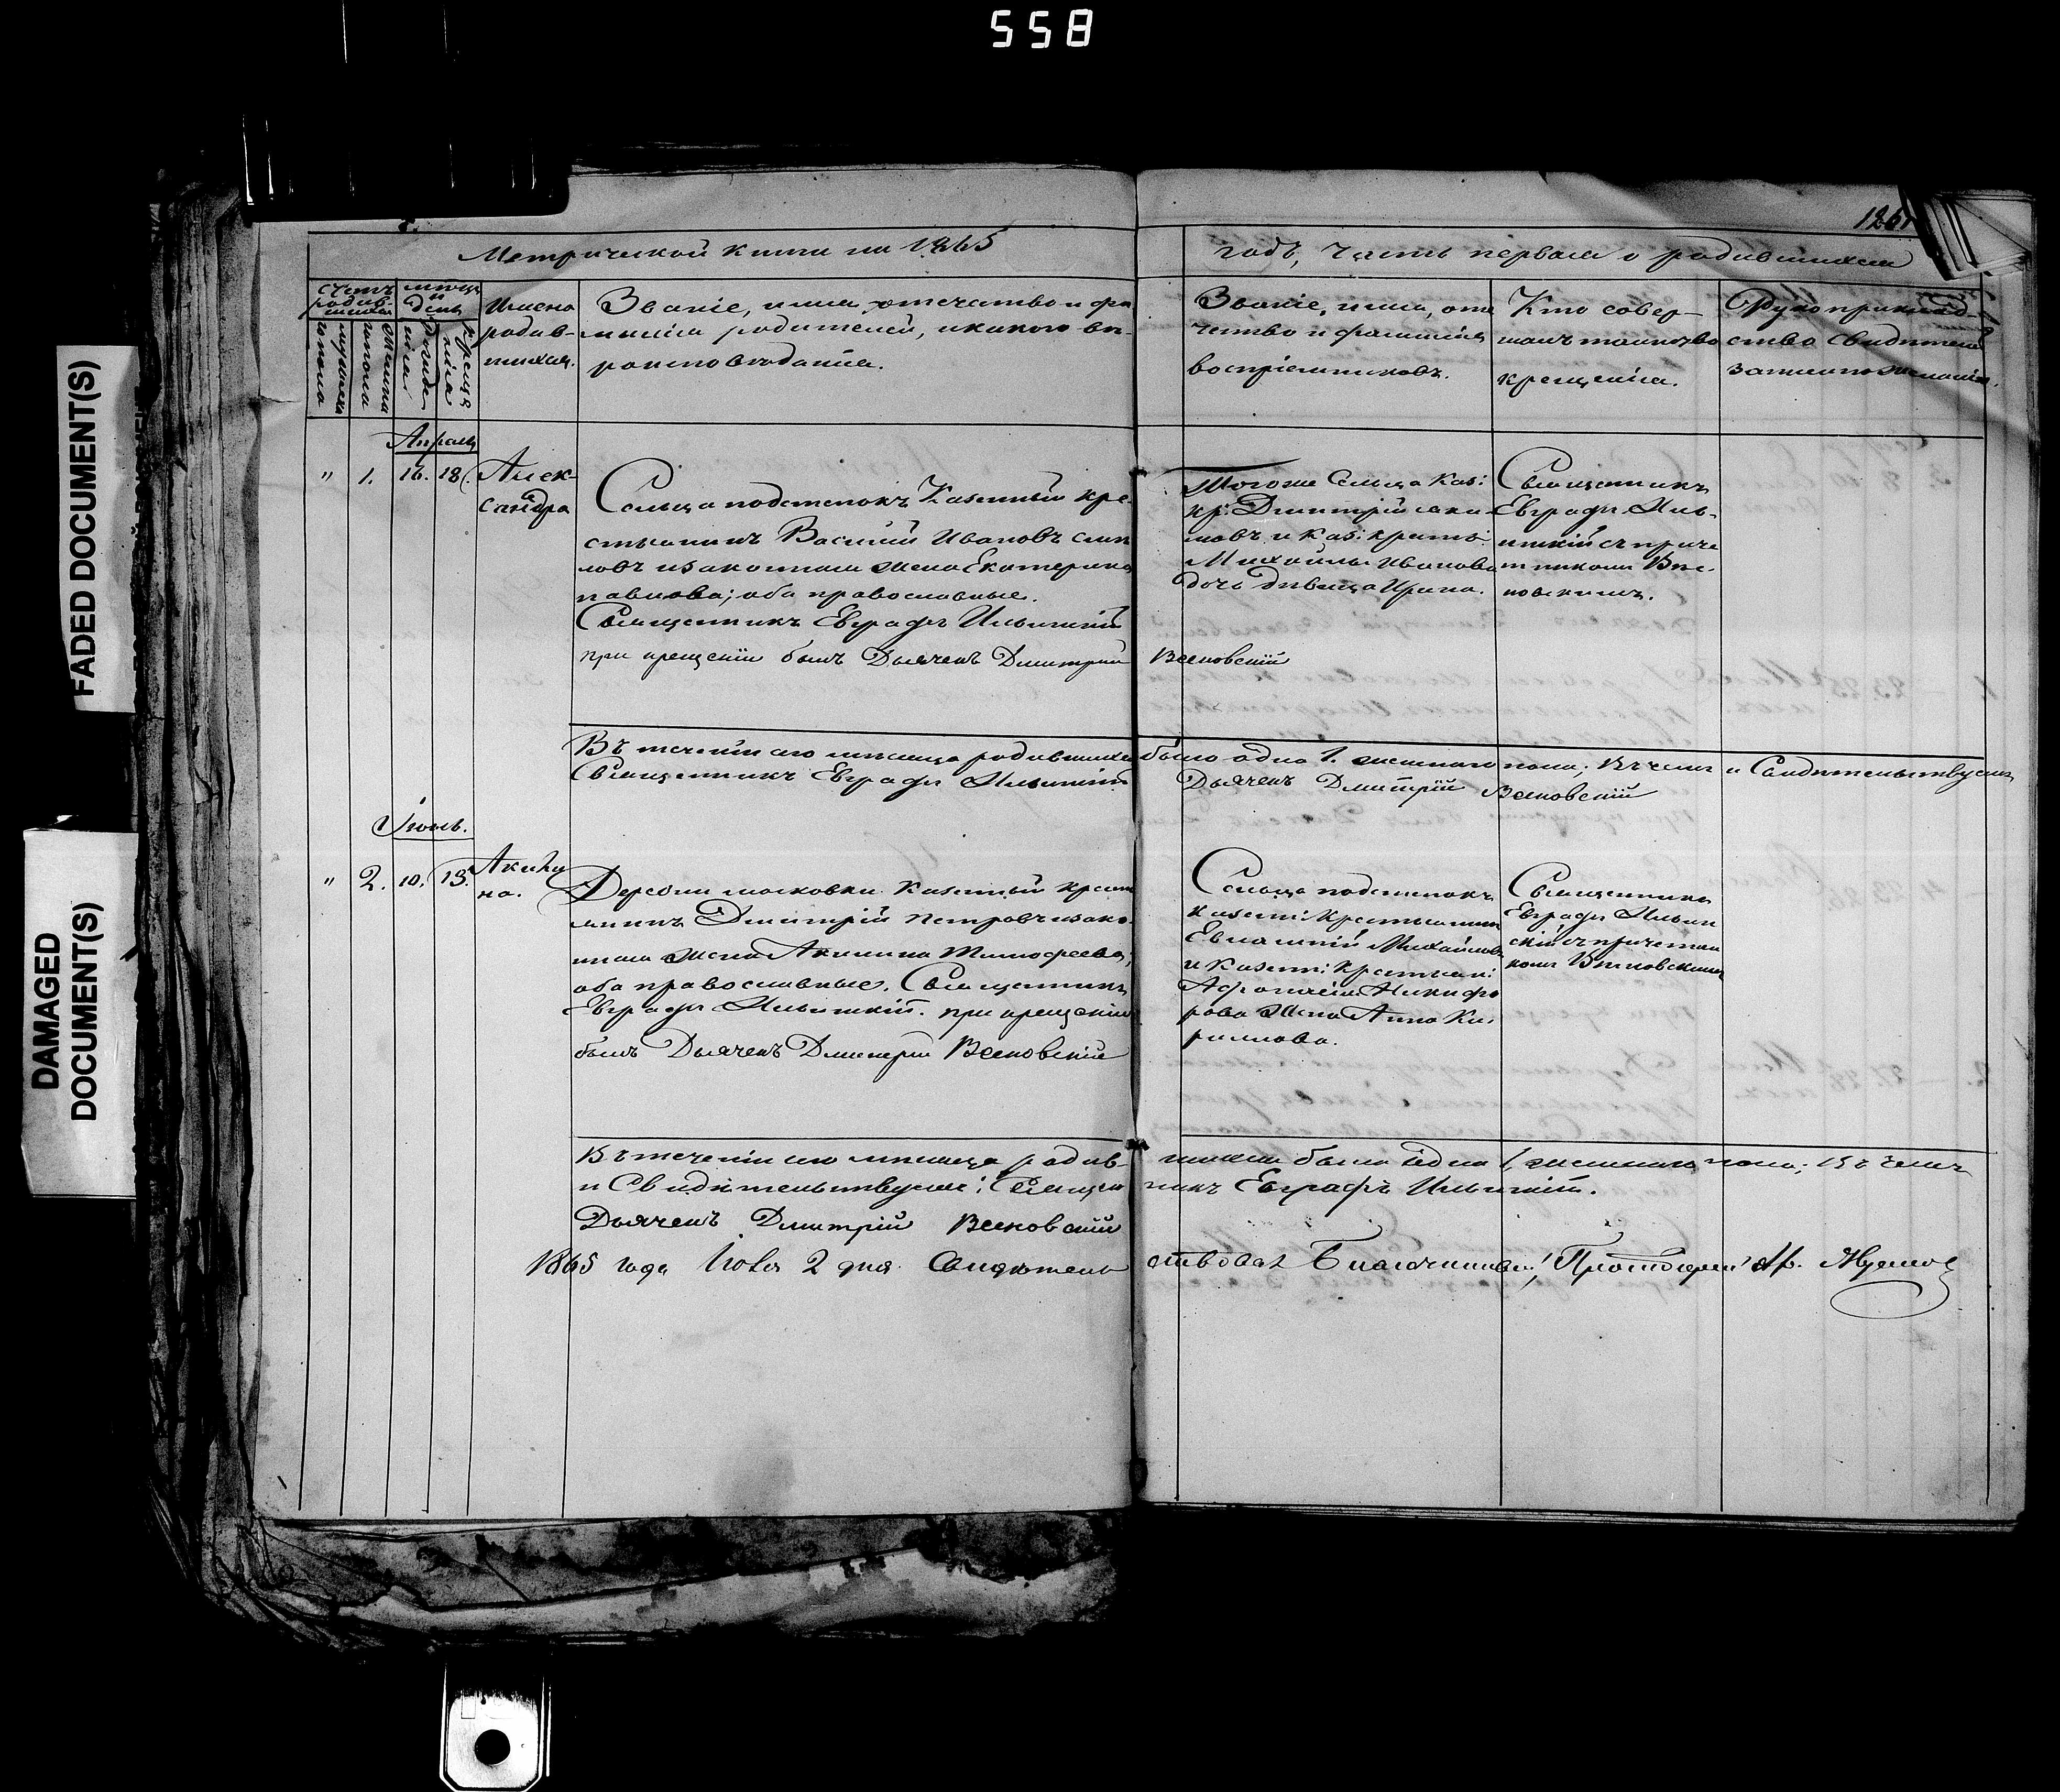 558
FADED DOCUMENT(S)
DAMAGED
DOCUMENT(S)
Метрической книги на 1865
годъ, Часть первая о родившихся
счетъ родив-шихся
мужеска пола
женска пола
мѣсяцъ и день
рожде-нія
креще-нія
Имена
родив-
шихся.
Званіе, имя, отечество и фа
милія родителей, и какого вѣ-
роисповѣданія.
Званіе, имя, оте
чество и фамилія
воспріемниковъ.
Кто совер-
шалъ таинство
крещенія.
Рукоприклад-
ство свидѣтелей
записи по желанію.
Апрѣль
" 1. 16. 18.
Алек-
сандра
Сельца подстепокъ Казенный кре
стьянинъ Василій Ивановъ
и законная жена Екатерина
павлова; оба православные.
Священникъ Евграфъ Ильинскій
при крещеніи былъ Дьячекъ Дмитрій
Тогоже Сельца Каз:
кр: Дмитрій
и каз: крест:
Михайлы Иванова
дочь дѣвица Ирина.
Священникъ
Евграфъ Иль-
инскій съ приче
тникомъ
Въ теченіи сего мѣсяца родившихся было одна 1. женскаго пола; Въ чемъ и Свидѣтельствуемъ
Священникъ Евграфъ Ильинскій
Дьячекъ Дмитрій
Іюнь.
" 2. 10. 13.
Акили
на.
Деревни московки Казенный крест
янинъ Дмитрій Петровъ и зако
нная жена Акилина Тимофеева;
оба православные. Священникъ
Евграфъ Ильинскій. при крещеніи
былъ Дьячекъ Дмитрій
Сельца подстепокъ
казен: крестьянинъ
Евлампій Михайловъ
и казен: крестьян:
Афанасія Никифо
рова жена Анна Ки
рилова.
Священникъ
Евграфъ Ильин
скій съ причетни
комъ
Въ теченіи сего мѣсяца родив- шихся была одна 1 женскаго пола; Въ чемъ
и Свидѣтельствуемъ: Священ никъ Евграфъ Ильинскій.
Дьячекъ Дмитрій
1865 года Іюля 2 дня Свидѣтель ствовалъ Благочинный, Протоіерей